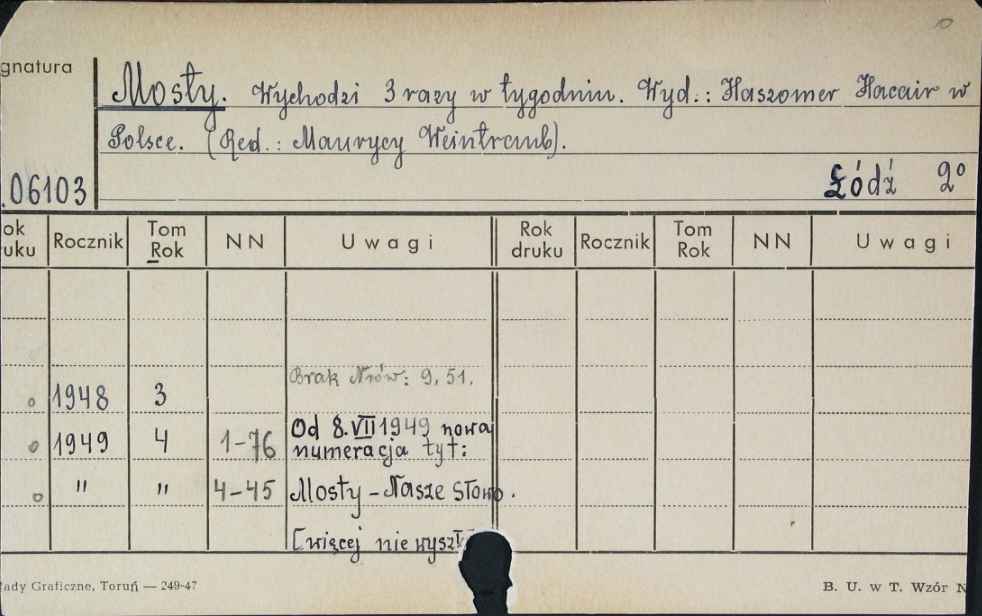 gnatura
Mosty. Wychodzi 3 razy w tygodniu. Wyd.: Haszomer Hacair w
Polsce. (Red.: Maurycy Weintraub).
.06103 Łódź 2°
ok uku Rocznik Tom Rok NN Uwagi Rok druku Rocznik Tom Rok NN Uwagi
Brak Nrów: 9, 51.
1948 3
1949 4 1-76 Od 8.VII 1949 nowa
numeracja tyt:
" " 4-45 Mosty - Nasze Słowo.
[więcej nie wyszł
ady Graficzne, Toruń — 249-47 B. U. w T. Wzór N